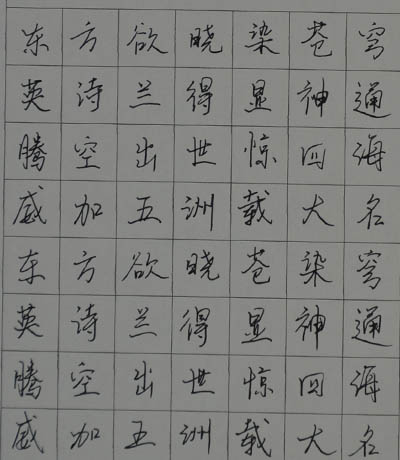 东方欲晓染苍穹
英诗兰得显神通
腾空出世惊四海
威加五洲载大名
东方欲晓苍染穹
英诗兰得显神通
腾空出世惊四海
威加五洲载大名